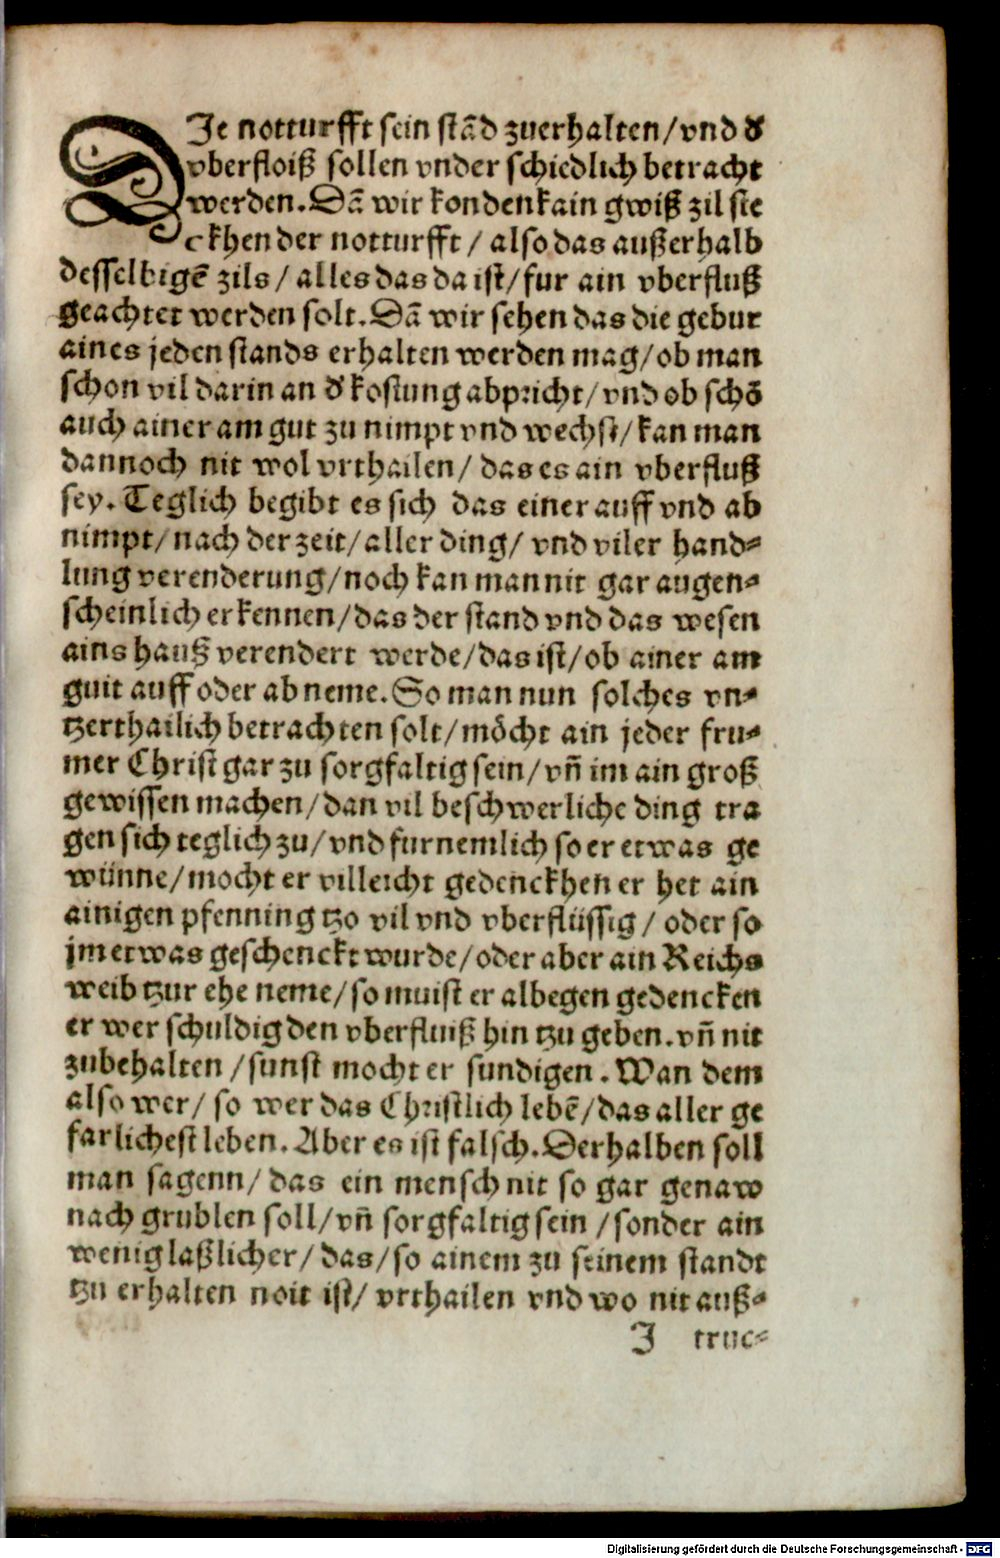 DIe notturfft sein stād zuerhalten/vnd d̕
vberfloiß sollen vnder schiedlich betracht
werden.Dā wir kondenkain gwiß zil ste
ckhen der notturfft / also das außerhalb
desselbigē zils / alles das da ist/fur ain vberfluß
geachtet werden solt.Dā wir sehen das die gebur
aines jeden stands erhalten werden mag/ob man
schon vil darin an d̕ kostung abpricht/vnd ob schō
auch ainer am gut zu nimpt vnd wechst/kan man
dannoch nit wol vrthailen/ das es ain vberfluß
sey. Teglich begibt es sich das einer auff vnd ab
nimpt/nach der zeit/aller ding/ vnd viler hand⸗
lung verenderung/noch kan man nit gar augen⸗
scheinlich erkennen/das der stand vnd das wesen
ains hauß verendert werde/das ist/ob ainer am
guit auff oder ab neme.So man nun solches vn⸗
tzerthailich betrachten solt/möcht ain jeder fru⸗
mer Christ gar zu sorgfaltig sein/vñ im ain groß
gewissen machen/dan vil beschwerliche ding tra
gen sich teglich zu/vnd furnemlich so er etwas ge
wünne/mocht er villeicht gedenckhen er het ain
ainigen pfenning tzo vil vnd vberflüssig/ oder so
jm etwas geschenckt wurde/oder aber ain Reichs
weib tzur ehe neme/so muist er albegen gedencken
er wer schuldig den vberfluiß hin tzu geben.vñ nit
zubehalten /sunst mocht er sundigen. Wan dem
also wer/ so wer das Christlich lebē/das aller ge
farlichest leben.Aber es ist falsch.Derhalben soll
man sagenn/das ein mensch nit so gar genaw
nach grublen soll/vñ sorgfaltig sein /sonder ain
wenig laßlicher/das/so ainem zu seinem standt
tzu erhalten noit ist/ vrthailen vnd wo nit auß⸗
J truc⸗
Digitalisierung gefördert durch die Deutsche Forschungsgemeinschaft - DFG